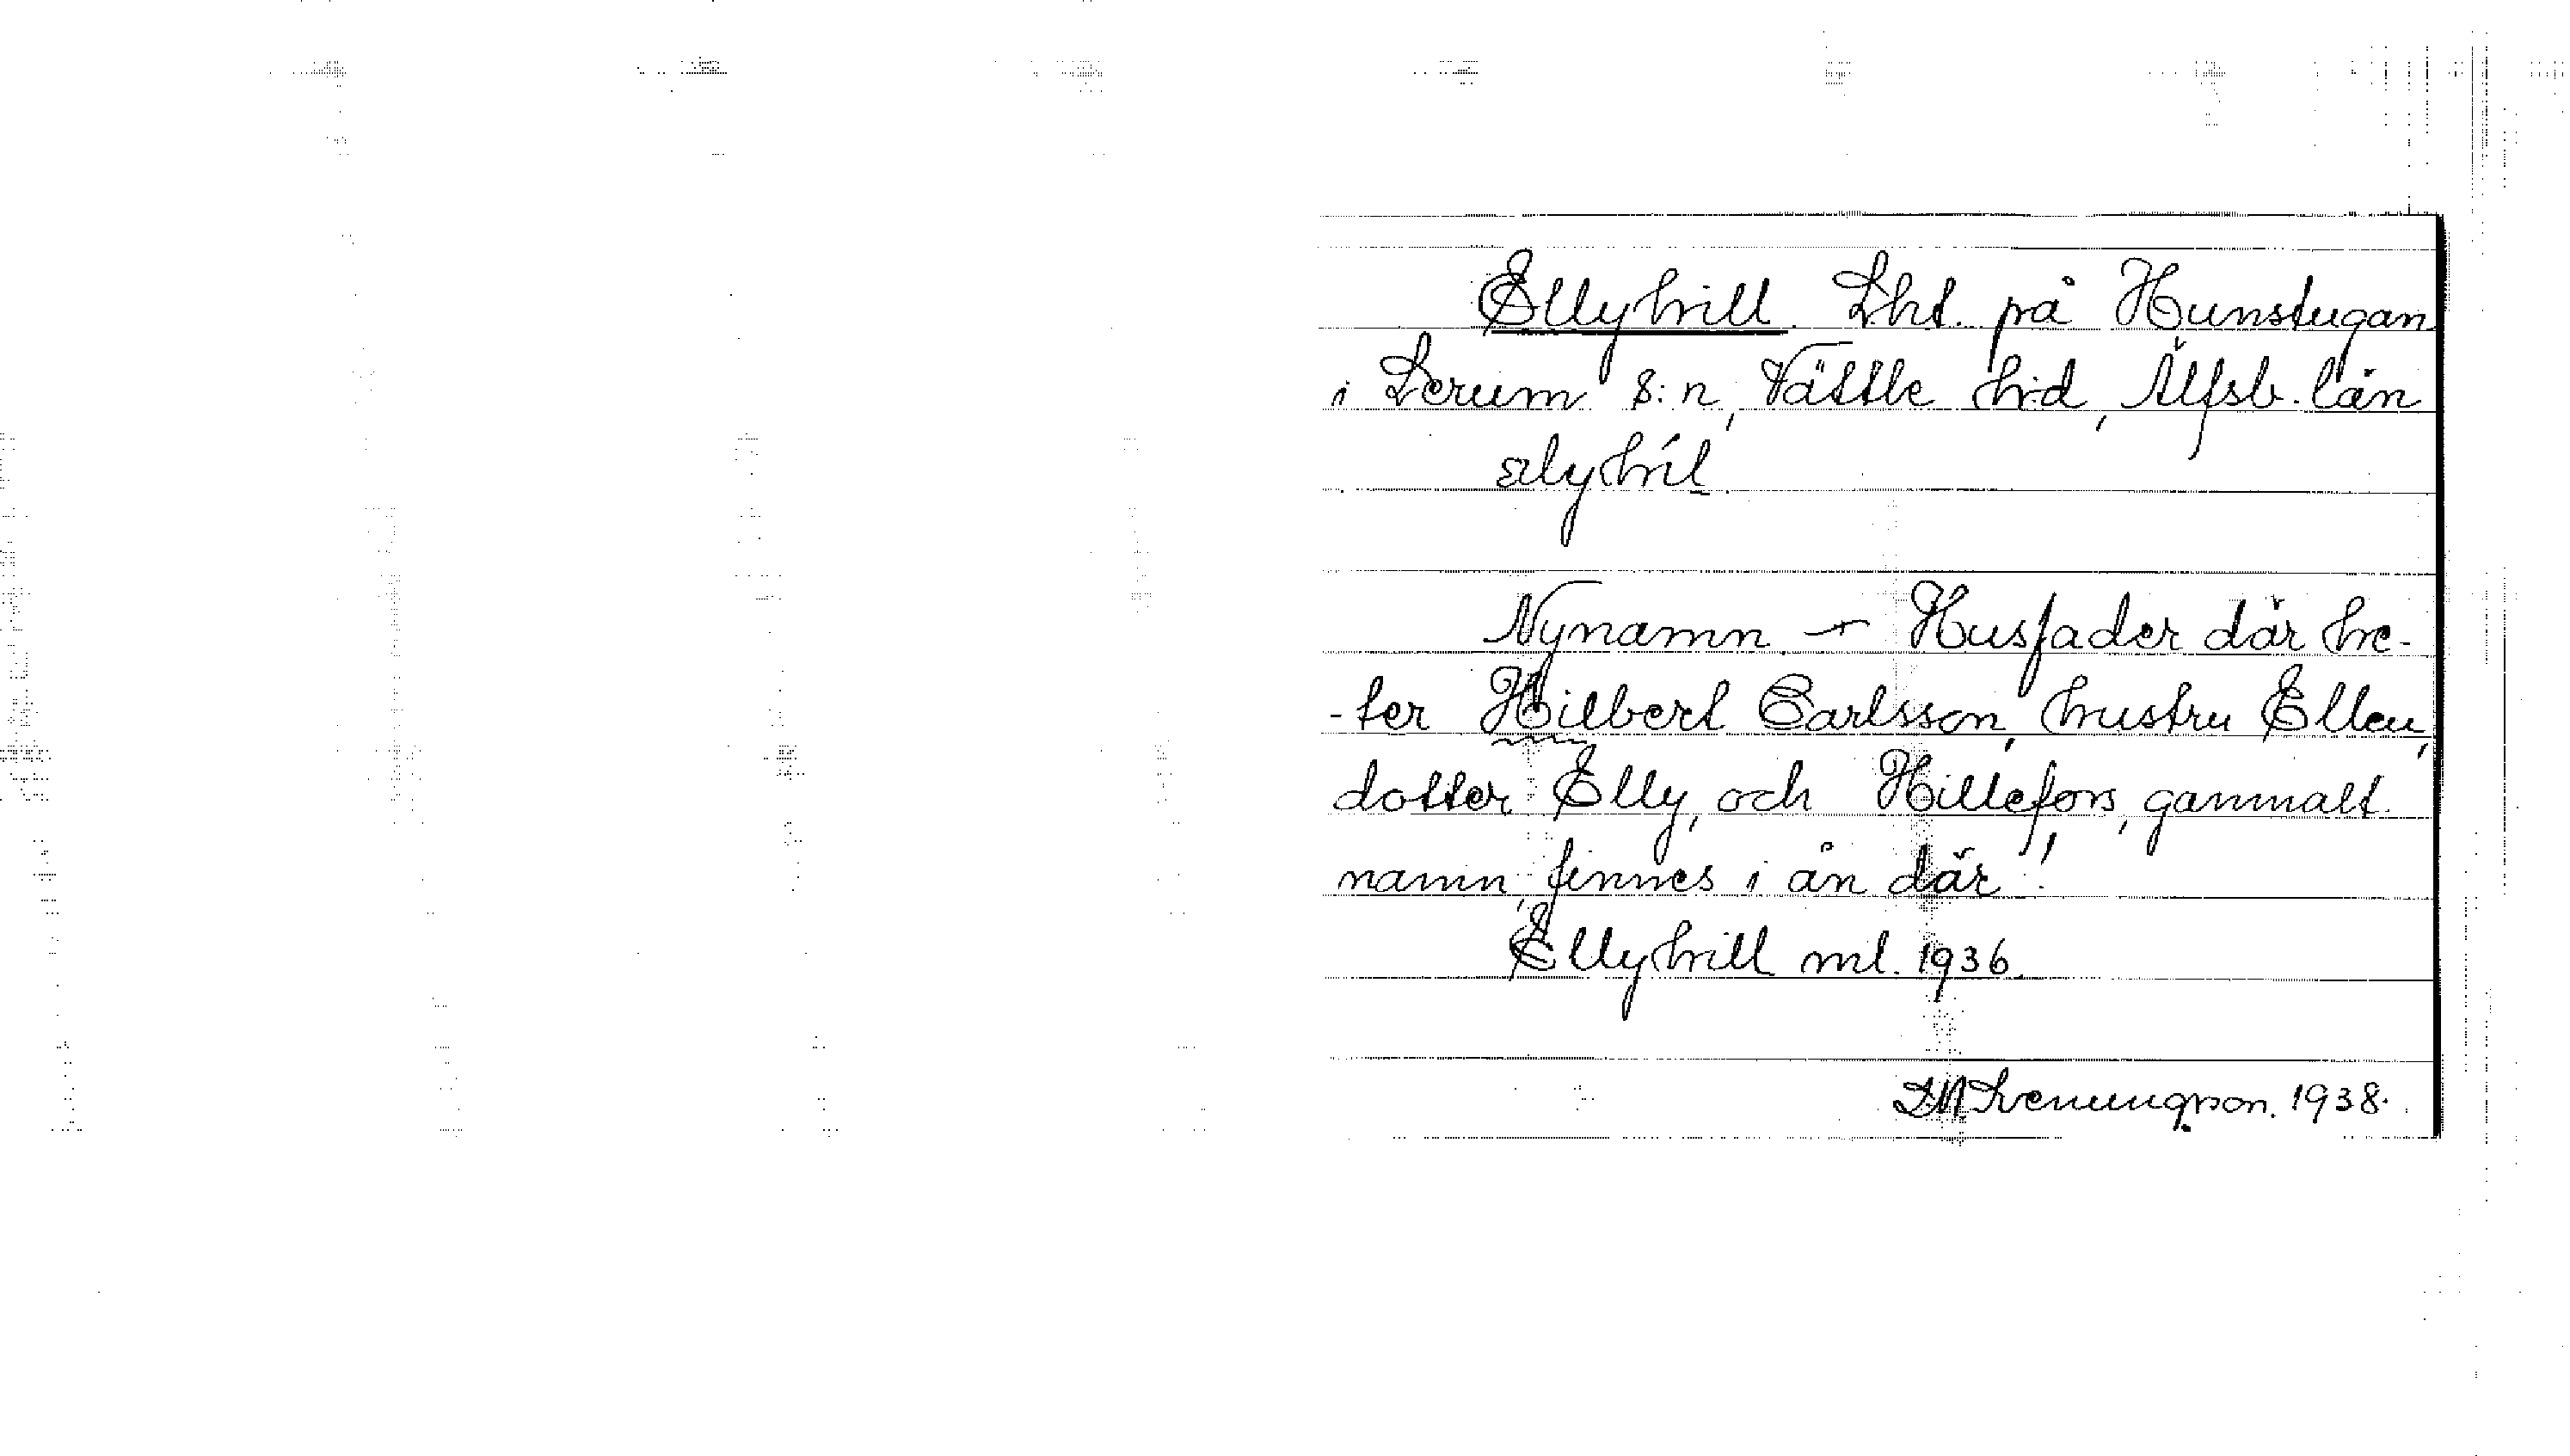 Ellyhill. Lht. på Hunstugan
i Lerum s:n, Vättle hd, Älfsb. län
ælyhil
Nynamn. – Husfader där he-
-ter Hilbert Carlsson, hustru Ellen,
dotter Elly, och Hillefors, gammalt
namn, finnes i ån där!
Ellyhill ml. 1936.
1938.